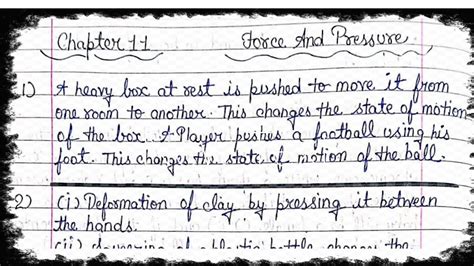 Chapter 11 Force And Pressure
1) A heavy box at rest is pushed to move it from
one room to another. This changes the state of motion
of the box. A Player pushes a football using his
foot. This changes the state of motion of the ball.
2) (i) Deformation of clay by pressing it between
the hands.
(ii) bottle